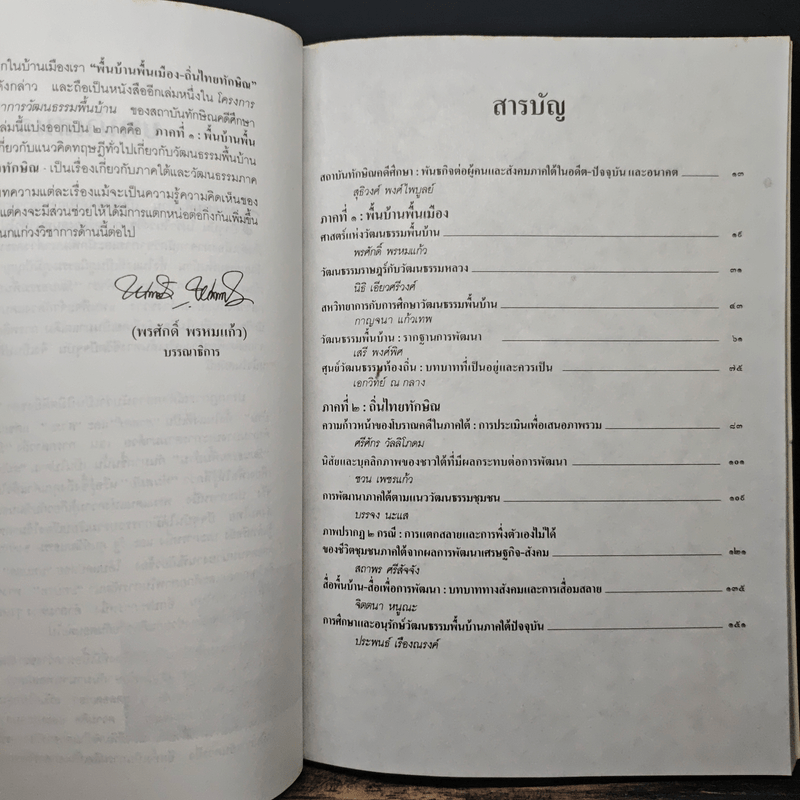 กในบ้านเมืองเรา "พื้นบ้านพื้นเมือง-ถิ่นไทยทักษิณ"
ดังกล่าว และถือเป็นหนังสืออีกเล่มหนึ่งใน โครงการ
าการวัฒนธรรมพื้นบ้าน ของสถาบันทักษิณคดีศึกษา
เล่มนี้แบ่งออกเป็น ๒ ภาคคือ ภาคที่ ๑ : พื้นบ้านพื้น
กี่ยวกับแนวคิดทฤษฎีทั่วไปเกี่ยวกับวัฒนธรรมพื้นบ้าน
ทักษิณ - เป็นเรื่องเกี่ยวกับภาคใต้และวัฒนธรรมภาค
ทความแต่ละเรื่องแม้จะเป็นความรู้ความคิดเห็นของ
แต่คงจะมีส่วนช่วยให้ได้มีการแตกหน่อต่อกิ่งกันเพิ่มขึ้น
นกแก่วงวิชาการด้านนี้ต่อไป
(พรศักดิ์ พรหมแก้ว)
บรรณาธิการ
สารบัญ
สถาบันทักษิณคดีศึกษา : พันธกิจต่อผู้คนและสังคมภาคใต้ในอดีต-ปัจจุบัน และอนาคต ๑๓
สุธิวงศ์ พงศ์ไพบูลย์
ภาคที่ ๑ : พื้นบ้านพื้นเมือง
ศาสตร์แห่งวัฒนธรรมพื้นบ้าน ๑๙
พรศักดิ์ พรหมแก้ว
วัฒนธรรมราษฎร์กับวัฒนธรรมหลวง ๓๑
นิธิ เอียวศรีวงศ์
สหวิทยาการกับการศึกษาวัฒนธรรมพื้นบ้าน ๔๓
กาญจนา แก้วเทพ
วัฒนธรรมพื้นบ้าน : รากฐานการพัฒนา ๖๑
เสรี พงศ์พิศ
ศูนย์วัฒนธรรมท้องถิ่น : บทบาทที่เป็นอยู่และควรเป็น ๗๕
เอกวิทย์ ณ ถลาง
ภาคที่ ๒ : ถิ่นไทยทักษิณ
ความก้าวหน้าของโบราณคดีในภาคใต้ : การประเมินเพื่อเสนอภาพรวม ๘๓
ศรีศักร วัลลิโภดม
นิสัยและบุคลิกภาพของชาวใต้ที่มีผลกระทบต่อการพัฒนา ๑๐๑
ชวน เพชรแก้ว
การพัฒนาภาคใต้ตามแนววัฒนธรรมชุมชน ๑๐๙
บรรจง นะแส
ภาพปรากฏ ๒ กรณี : การแตกสลายและการพึ่งตัวเองไม่ได้
ของชีวิตชุมชนภาคใต้จากผลการพัฒนาเศรษฐกิจ-สังคม ๑๒๑
สถาพร ศรีสัจจัง
สื่อพื้นบ้าน-สื่อเพื่อการพัฒนา : บทบาททางสังคมและการเสื่อมสลาย ๑๓๕
จิตตนา หนูณะ
การศึกษาและอนุรักษ์วัฒนธรรมพื้นบ้านภาคใต้ปัจจุบัน ๑๕๑
ประพนธ์ เรืองณรงค์